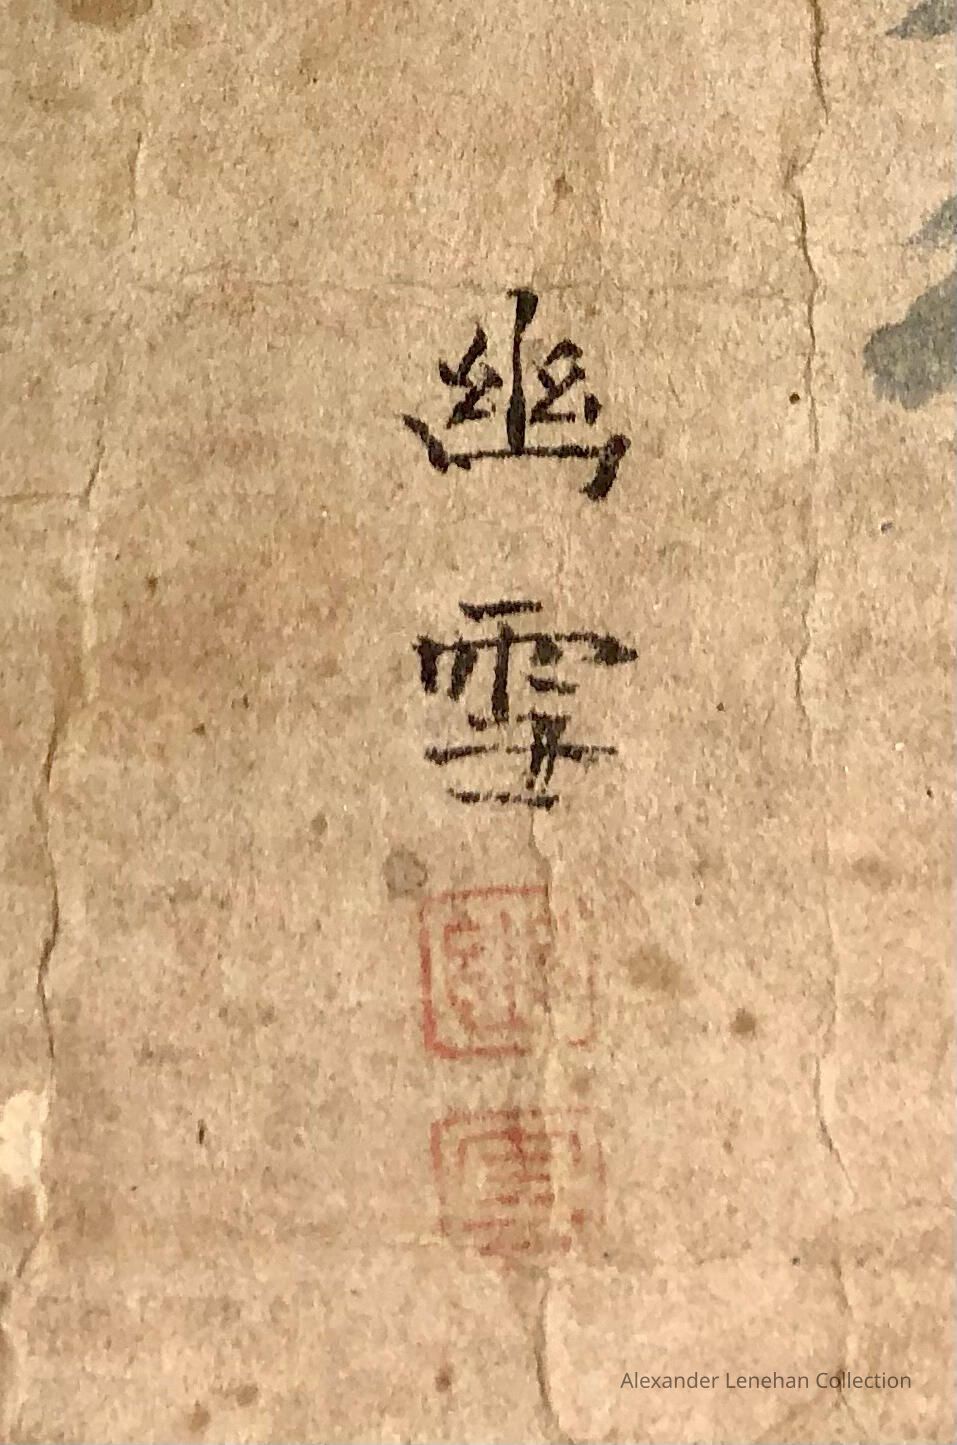 幽雪
Alexander Lenehan Collection